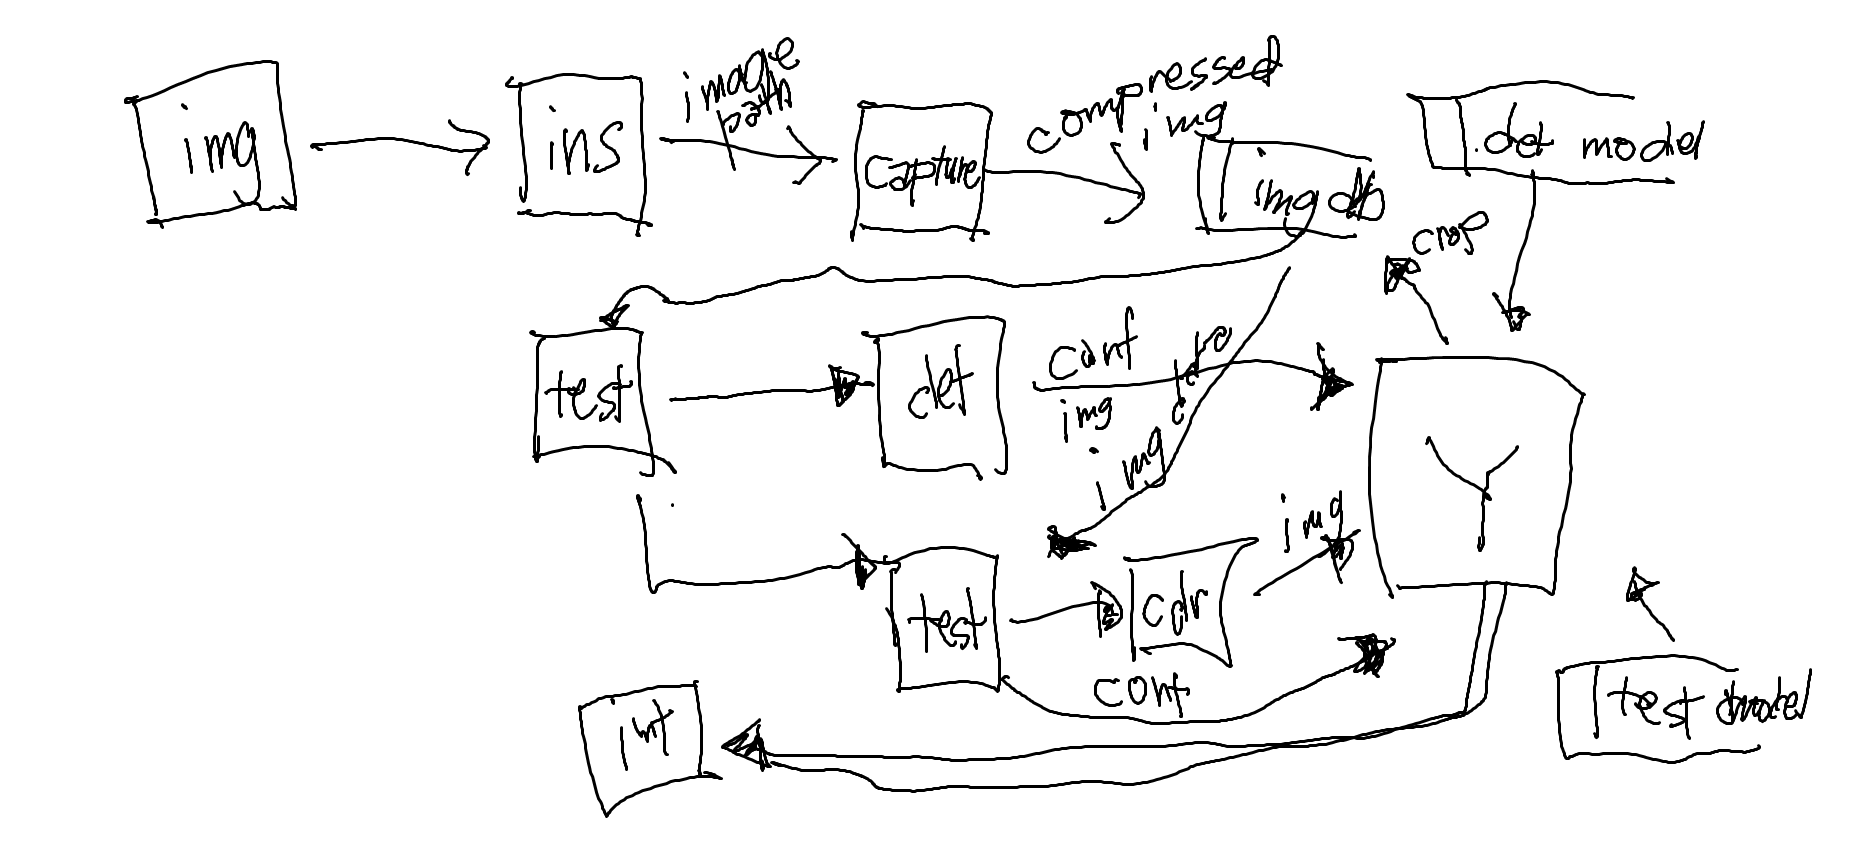 img
ins
image
path
capture
compressed
img
img db
det model
crop
test
det
conf
img
img
test
cdr
img
conf
Y
int
test model